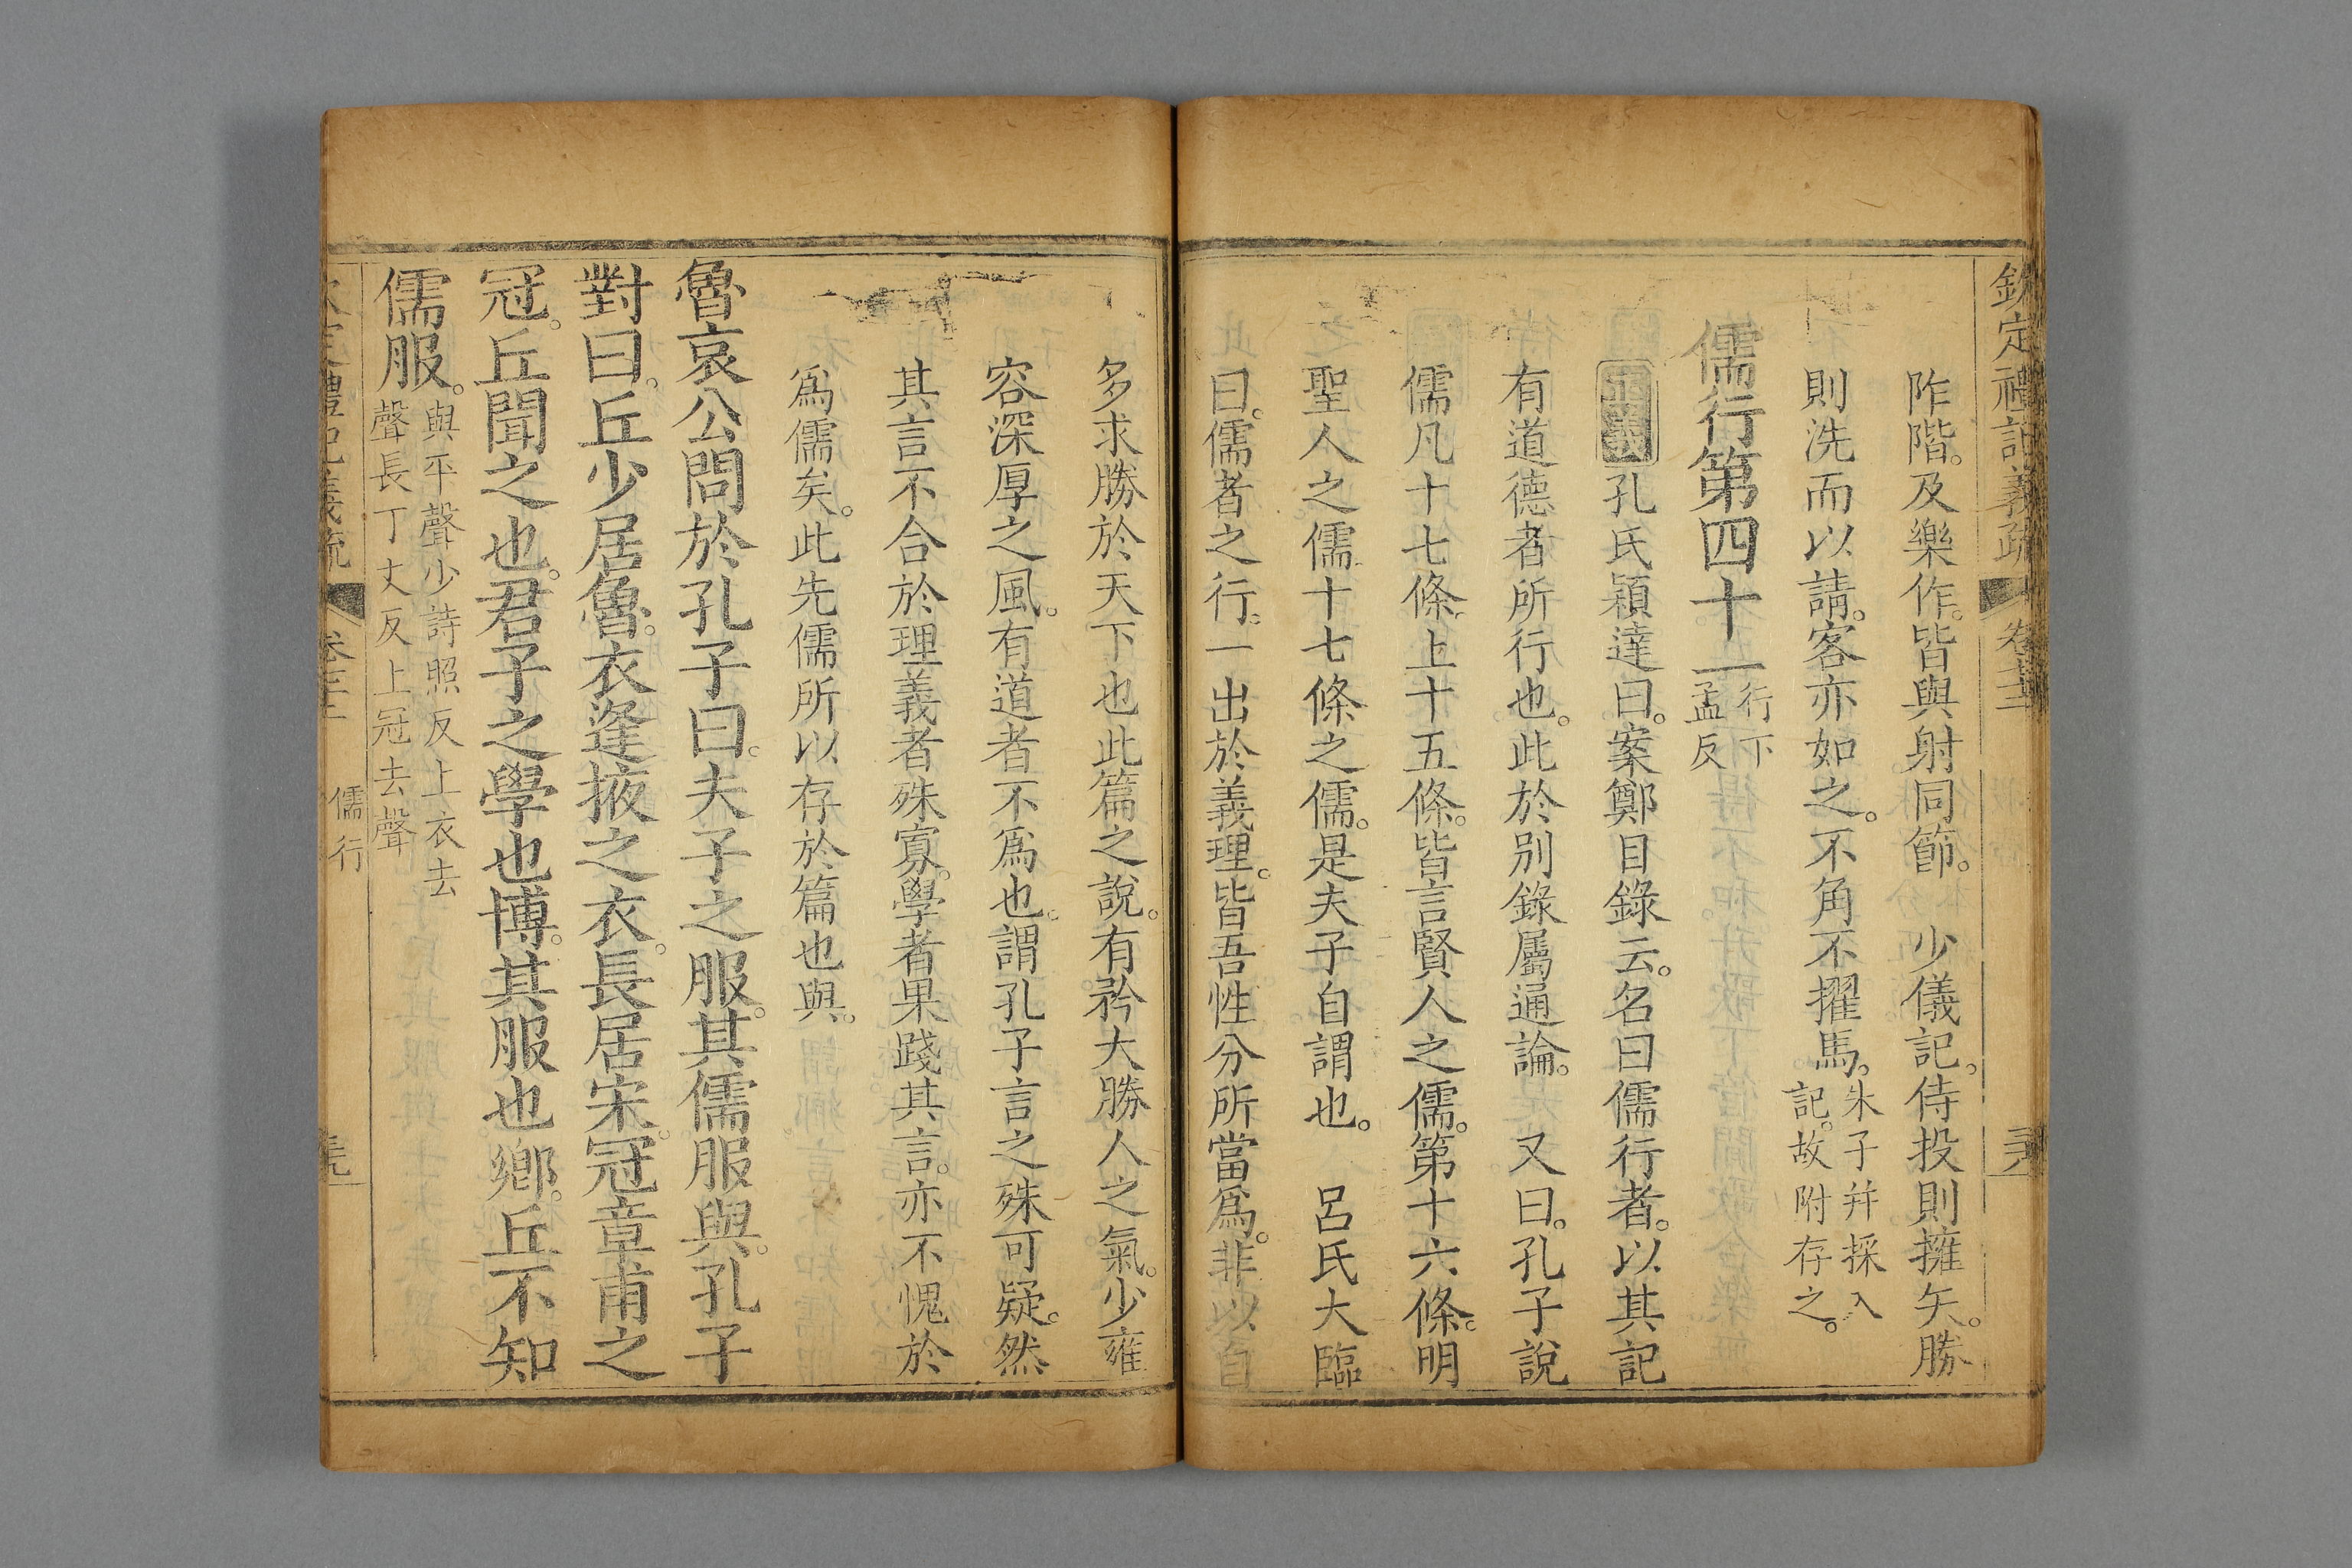 欽定禮記義疏 卷 儒行
阼階。及樂作。皆與射同節。 少儀記。侍投則擁矢。勝
則洗而以請。客亦如之。不角不擢馬。朱子幷採入記。故附存之。
儒行第四十一行下孟反
正義孔氏穎達曰。案鄭目錄云。名曰儒行者。以其記
有道德者所行也。此於別錄屬通論。 又曰。孔子說
儒凡十七條。上十五條。皆言賢人之儒。第十六條。明
聖人之儒。十七條之儒。是夫子自謂也。 呂氏大臨
曰。儒者之行。一出於義理。皆吾性分所當爲。非以自
多求勝於天下也此篇之說。有矜大勝人之氣。少雍
容深厚之風。有道者不爲也。謂孔子言之殊可疑。然
其言不合於理義者殊寡。學者果踐其言。亦不愧於
爲儒矣。此先儒所以存於篇也與。
魯哀公問於孔子曰。夫子之服。其儒服與。孔子
對曰。丘少居魯。衣逢掖之衣。長居宋。冠章甫之
冠。丘聞之也。君子之學也博。其服也鄉。丘不知
儒服。與平聲少詩照反上衣去聲長丁丈反上冠去聲
禮記義疏 儒行